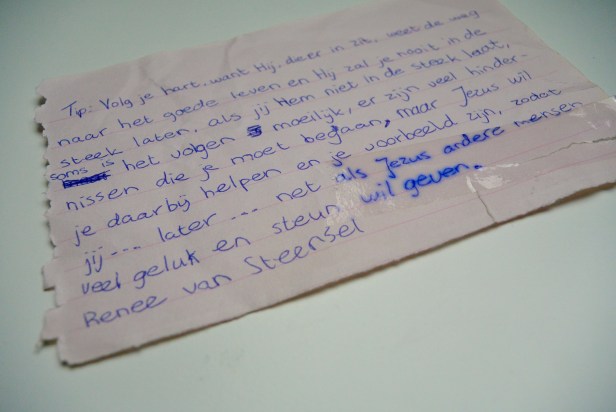 Tip: Volg je hart, want Hij, die er in zit, weet de weg
naar het goede leven en Hij zal je nooit in de
steek laten, als jij Hem niet in de steek laat,
soms is het volgen moeilijk, er zijn veel hinder-
nissen die je moet begaan, maar Jezus wil
je daarbij helpen en je voorbeeld zijn, zodat
jij... later... net als Jezus andere mensen
veel geluk en steun wil geven.
Renee van Steensel